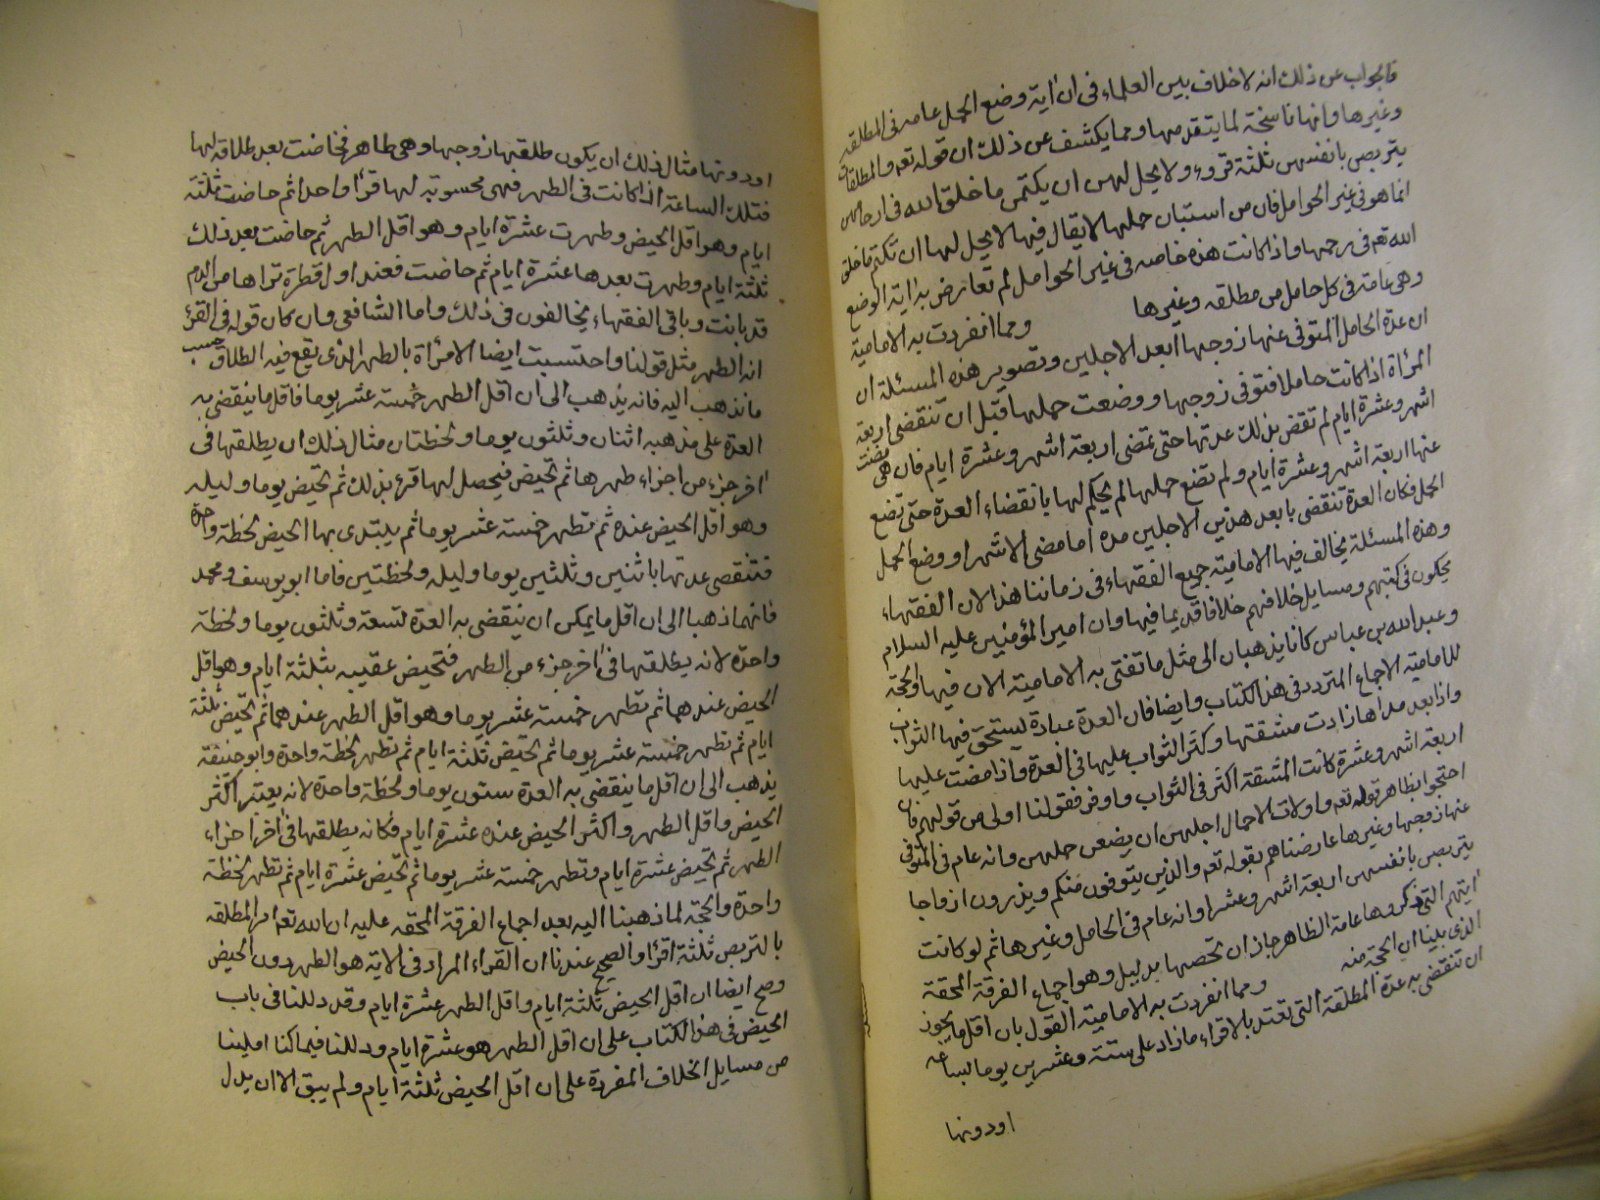 فالجواب عن ذلك انه لا خلاف بين العلماء فى ان اية وضع الحمل عامه فى المطلقه
وغيرها وانها ناسخة لما يتقدمها ومما يكشف عن ذلك ان قوله تعه والمطلقات
يتربصن بانفسهن ثلثة قروء ولا يحل لهن ان يكتمن ما خلق الله فى ارحامهن
انما هو فى غير الحوامل فان من استبان حملها لا يقال فيها لا يحل لها ان تكتم ما خلق
الله تعه فى رحمها واذا كانت هذه خاصه فى غير الحوامل لم تعارض بذ اية الوضع
وهى عامة فى كل حامل من مطلقه وغيرها ومما انفردت به الامامية
ان عدة الحامل المتوفى عنها زوجها ابعد الاجلين وتصوير هذه المسئلة ان
المرأة اذا كانت حاملا فتوفى زوجها ووضعت حملها قبل ان تنقضى اربعة
اشهر وعشرة ايام لم تقض بذلك عدتها حتى تمضى اربعة اشهر وعشرة ايام فان هى مضت
عنها اربعة اشهر وعشرة ايام ولم تضع حملها لم يحكم لها بانقضاء العدة حتى تضع
الحمل فكان العدة تنقضى بابعد هذين الاجلين مده اما مضى الاشهر او وضع الحمل
وهذه المسئلة يخالف فيها الامامية جميع الفقهاء فى زماننا هذا الا ان الفقهاء
يحكون فى كتبهم ومسايل خلافهم خلافا قديما فيها وان امير المؤمنين عليه السلام
وعبد الله بن عباس كانا يذهبان الى مثل ما تفتى به الامامية الان فيها والحجة
للامامية الاجماع المتردد فى هذا الكتاب وايضا فان العدة عبادة يستحق فيها الثواب
واذا بعد مداها زادت مشقتها وكثر الثواب عليها فى العدة واذا مضت عليها
اربعة اشهر وعشرة كانت المشقة اكثر فى الثواب واوفر فقولنا اولى من قولهم فان
احتجوا بظاهر قوله تعه واولات الاحمال اجلهن ان يضعن حملهن وانه عام فى المتوفى
عنها زوجها وغيرها عارضناهم بقوله تعه والذين يتوفون منكم ويذرون ازواجا
يتربصن بانفسهن اربعة اشهر وعشرا وانه عام فى الحامل وغيرها ثم لو كانت
ايتهم التى ذكروها عامة الظاهر جاز ان تخصها بدليل وهو اجماع الفرقة المحقة
الذى بينا ان الحجة منه ومما انفردت به الامامية القول بان اقل ما يجوز
ان تنقضى به عدة المطلقة التى تعتد بالاقراء ما زاد على ستة وعشرين يوما بساعه
اودونها
اودونها مثال ذلك ان يكون طلقها زوجها وهى طاهر فحاضت بعد طلاقه لها
فتلك الساعة اذا كانت فى الطهر فهى محسوبة لها قرأ واحدا ثم حاضت ثلثة
ايام وهو اقل الحيض وطهرت عشرة ايام وهو اقل الطهر ثم حاضت بعد ذلك
ثلثة ايام وطهرت بعدها عشرة ايام ثم حاضت فعند اول قطرة تراها من الدم
قد بانت وباقى الفقهاء يخالفون فى ذلك واما الشافعى وان كان قوله فى القرؤ
انه الطهر مثل قولنا واحتسبت ايضا الامرأة بالطهر الذى يقع فيه الطلاق حسب
ما نذهب اليه فانه يذهب الى ان اقل الطهر خمسة عشر يوما فاقل ما ينقضى به
العدة على مذهبه اثنان وثلثون يوما ولحظتان مثال ذلك ان يطلقها فى
اخر جزء من اجزاء طهرها ثم تحيض فيحصل لها قرء بذلك ثم تحيض يوما وليله
وهو اقل الحيض عنده ثم تطهر خمسة عشر يوما ثم يبتدى بها الحيض لحظة واحدة
فتنقضى عدتها باثنين وثلثين يوما وليله ولحظتين فاما ابو يوسف ومحمد
فانهما ذهبا الى ان اقل ما يمكن ان ينقضى به العدة تسعة وثلثون يوما ولحظة
واحدة لانه يطلقها فى اخر جزء من الطهر فتحيض عقيبه بثلثة ايام وهو اقل
الحيض عندهما ثم تطهر خمسة عشر يوما وهو اقل الطهر عندهما ثم تحيض ثلثة
ايام ثم تطهر خمسة عشر يوما ثم تحيض ثلثة ايام ثم تطهر لحظة واحدة وابو حنيفة
يذهب الى ان اقل ما ينقضى به العدة ستون يوما ولحظة واحدة لانه يعتبر اكثر
الحيض واقل الطهر واكثر الحيض عنده عشرة ايام فكانه يطلقها فى اخر اجزاء
الطهر ثم تحيض عشرة ايام وتطهر خمسة عشر يوما ثم تحيض عشرة ايام ثم تطهر لحظة
واحدة والحجة لما ذهبنا اليه بعد اجماع الفرقة المحقه عليه ان الله تعه امر المطلقه
بالتربص ثلثة اقرأ والصحيح عندنا ان القراء المراد فى الاية هو الطهر دون الحيض
وصح ايضا ان اقل الحيض ثلثة ايام واقل الطهر عشرة ايام وقد دللنا فى باب
الحيض فى هذا الكتاب على ان اقل الطهر هو عشرة ايام ودللنا فيما كنا امليناه
من مسايل الخلاف المفردة على ان اقل الحيض ثلثة ايام ولم يبق الا ان يدل